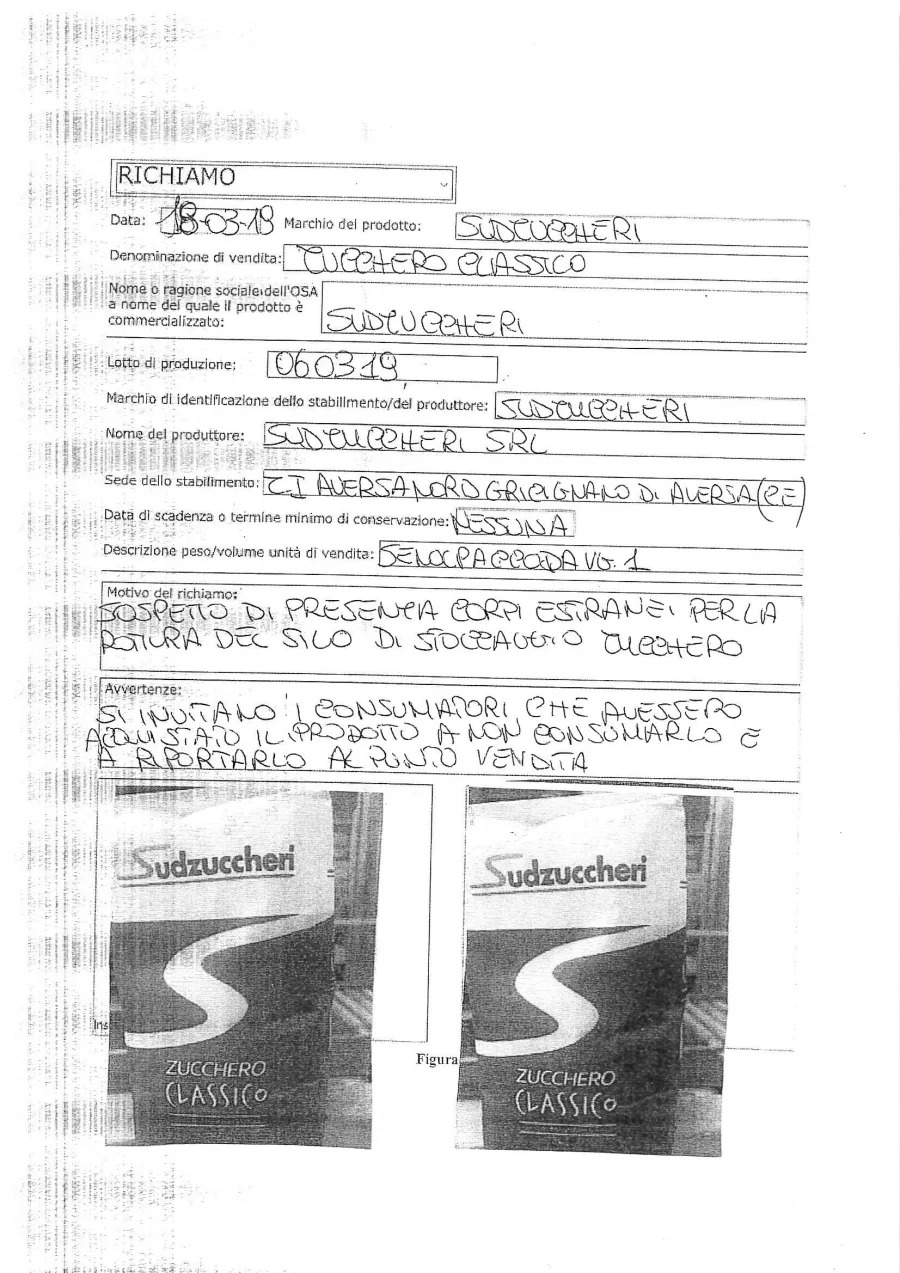 RICHIAMO
Data: 18-03-19 Marchio del prodotto: SUDZUCCHERI
Denominazione di vendita: ZUCCHERO CLASSICO
Nome o ragione sociale dell'OSA
a nome del quale il prodotto è
commercializzato: SUDZUCCHERI
Lotto di produzione: 060319
Marchio di identificazione dello stabilimento/del produttore: SUDZUCCHERI
Nome del produttore: SUDZUCCHERI SRL
Sede dello stabilimento: Z.I AVERSA NORD GRICIGNANO DI AVERSA (CE)
Data di scadenza o termine minimo di conservazione: NESSUNA
Descrizione peso/volume unità di vendita: DA 1
Motivo del richiamo:
SOSPETTO DI PRESENZA CORPI ESTRANEI PER LA
ROTTURA DEL SILO DI STOCCAGGIO ZUCCHERO
Avvertenze:
SI INVITANO I CONSUMATORI CHE AVESSERO
ACQUISTATO IL PRODOTTO A NON CONSUMARLO E
A RIPORTARLO AL PUNTO VENDITA
Sudzuccheri
ZUCCHERO
CLASSICO
Ins
Figura
Sudzuccheri
ZUCCHERO
CLASSICO